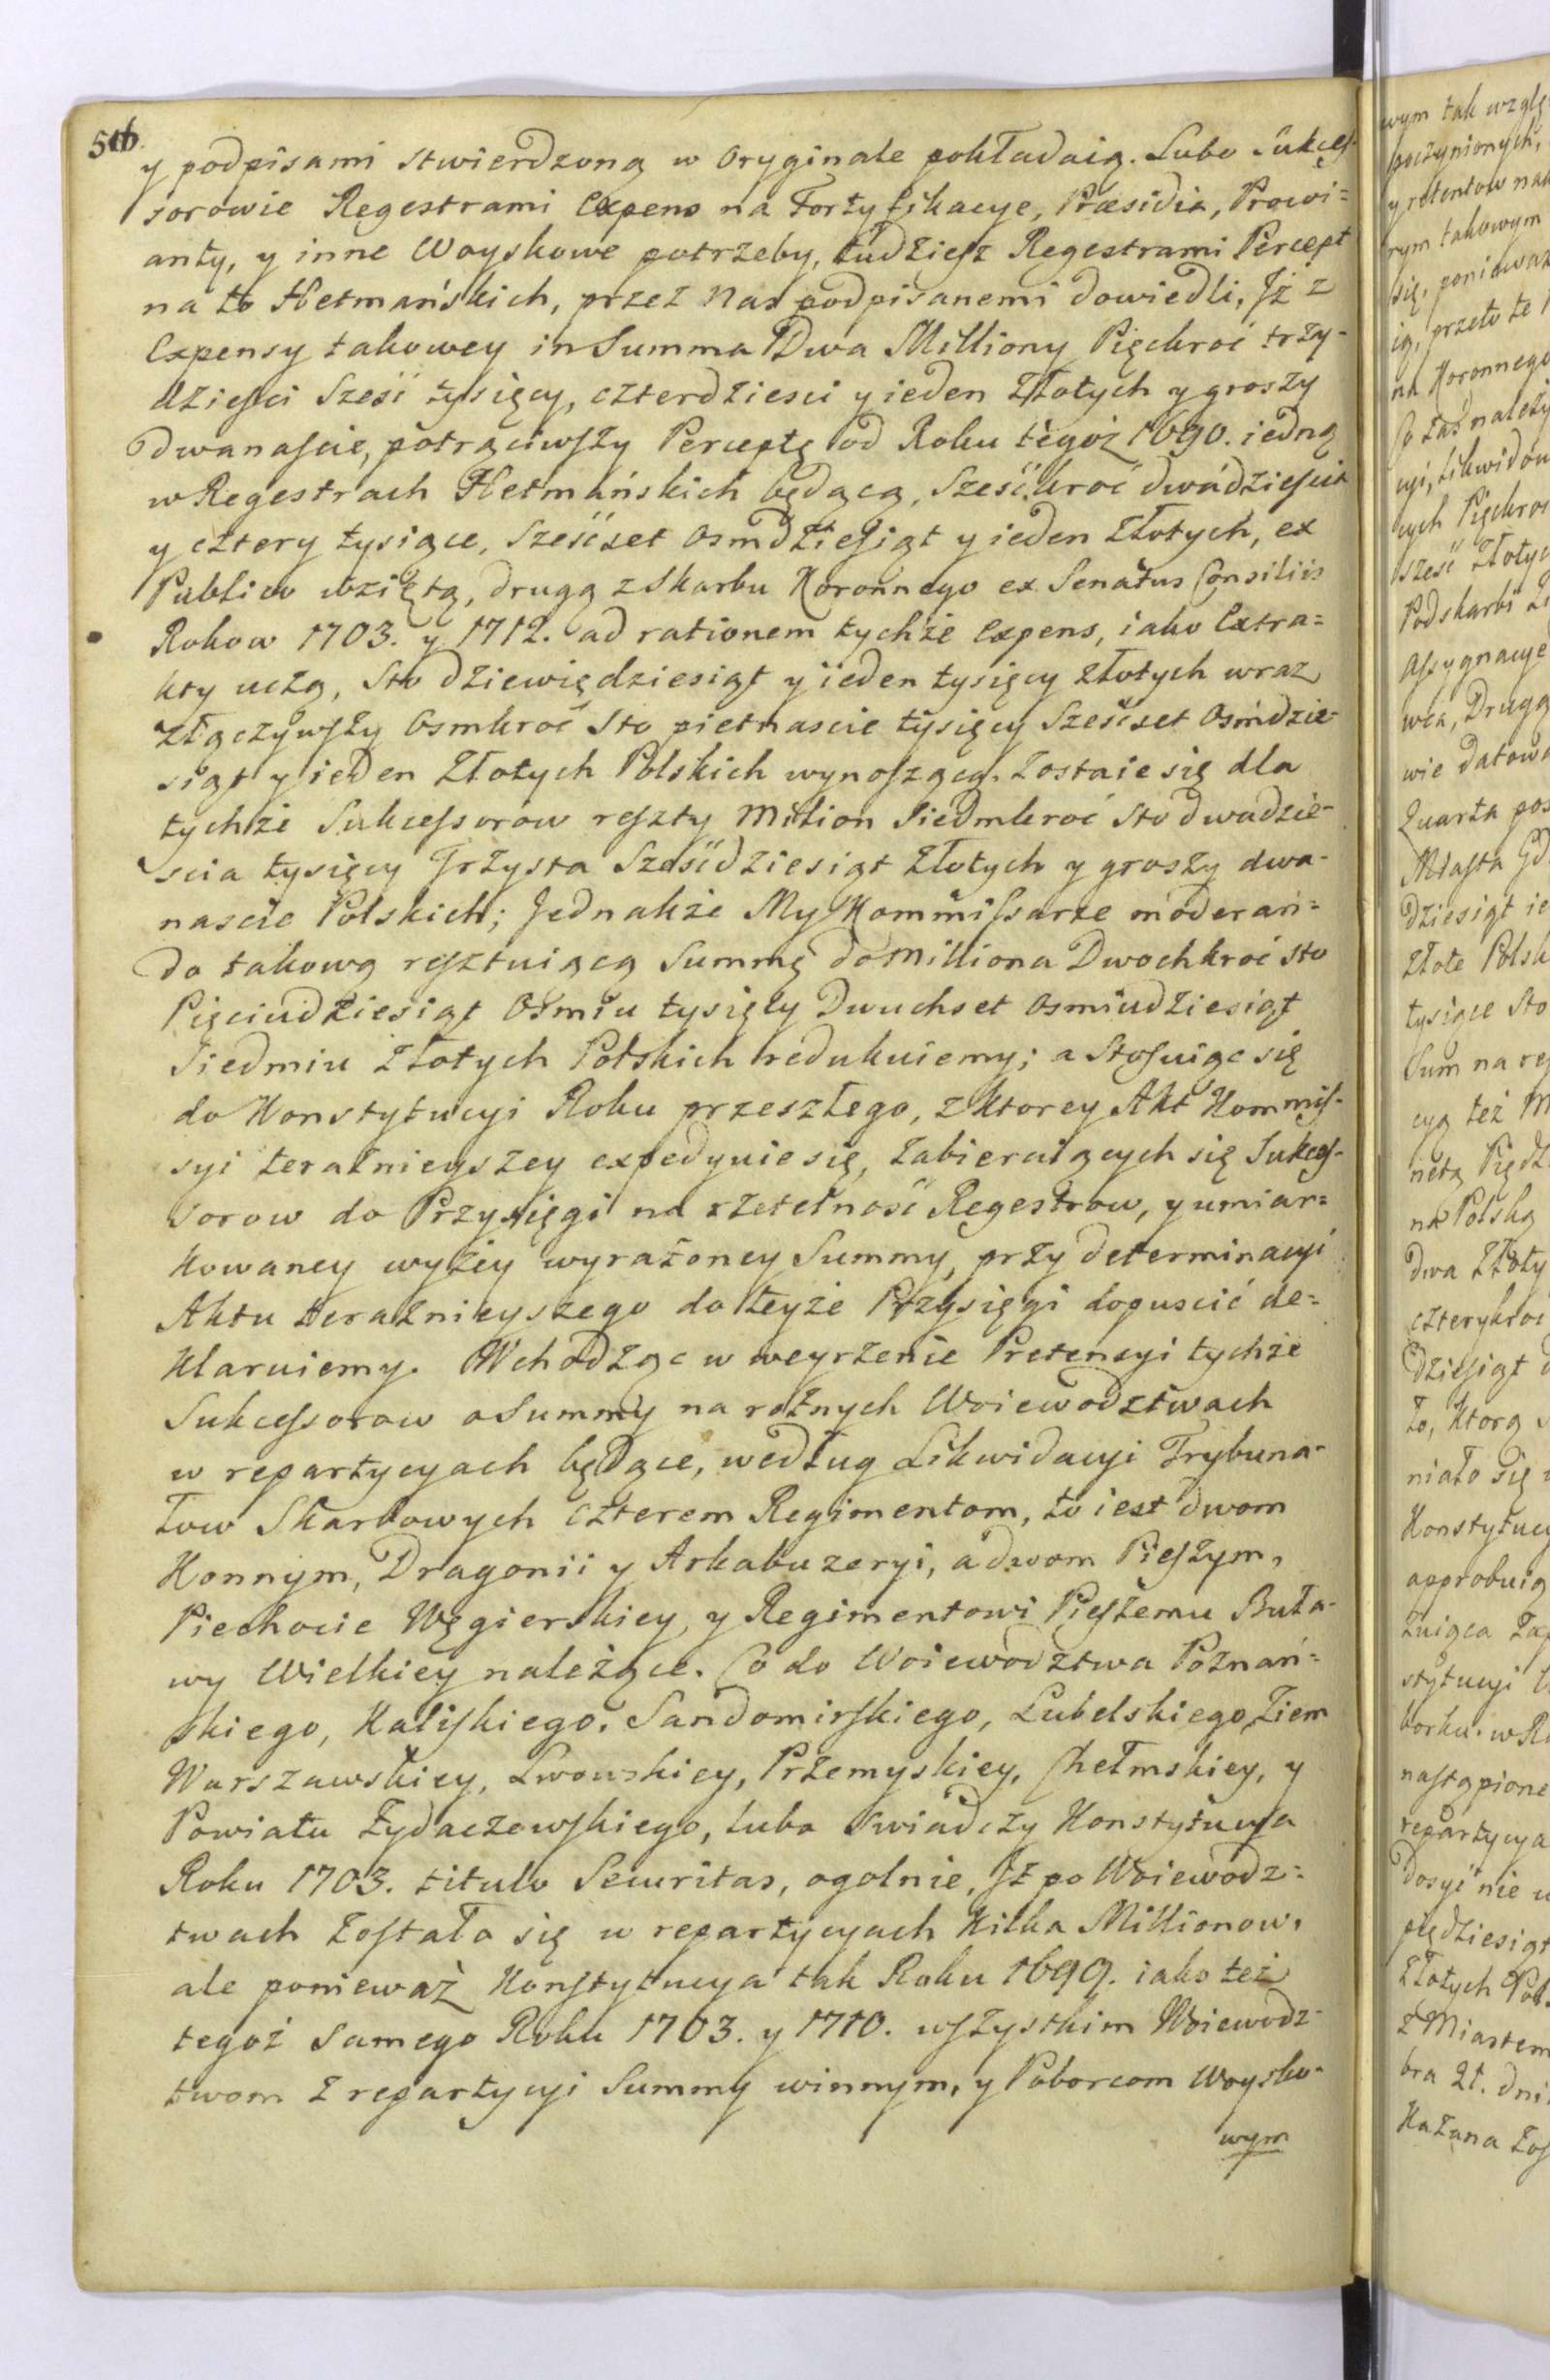 516.
y podpisami stwierdzoną w Oryginale pokładaią. Lubo Sukces-
sorowie Regestrami Expens na Fortyfikacye, Præsidia, Prowi=
anty, y inne Woyskowe potrzeby, tudziesz Regestrami Percept
na to Hetmańskich, przez Nas podpisanemi dowiedli, Jż z
Expensy takowey in Summa Dwa Milliony Pięckroć trzy-
dzieści sześć tysięcy, czterdziesci y ieden Złotych y groszy
dwanaście, potrąciwszy Perceptę od Roku tegoż 1690. iedną
w Regestrach Hetmańskich będącą, Sześćkroć dwádzieścia
y cztery tysiące, sześćset osmdziesiąt y ieden Złotych, ex
Publico wziętą, drugą z Skarbu Koronnego ex Senatus Consiliis
Rokow 1703. y 1712. ad rationem tychże Expens, iako Extra=
kty uczą, sto dziewiędziesiąt y ieden tysięcy złotych wraz
złączywszy Osmkroć sto pietnascie tysięcy sześcset Osmdzie-
siąt y ieden Złotych Polskich wynoszącą. Zostaie się dla
tychże Sukcessorow reszty Milion Siedmkroć sto dwadzie-
scia tysięcy Trzysta Sześćdziesiąt Złotych y groszy dwa-
nascie Polskich; Jednakże My Kommissarze moderan=
do takową resztuiącą Summę do Milliona Dwochkroć sto
Pięciudziesiąt Ośmiu tysięcy Dwuchset Osmiudziesiąt
Siedmiu Złotych Polskich redukuiemy; a stosuiąc się
do Konstytucyi Roku przeszłego, z ktorey Akt Kommis-
syi teraznieyszey expedyuie się, zabieraiących się Sukces-
sorow do Przysięgi na rzetelność Regestrow, y umiar=
kowaney wyżey wyrażoney Summy, przy determinacyi
Aktu terażnieyszego do teyże Przysięgi dopuscić de=
klaruiemy. Wchodząc w weyrzenie Pretensyi tychże
Sukcessorow o Summy na rożnych Woiewodztwach
w repartycyach będące, według Likwidacyi Trybuna-
łow Skarbowych czterem Regimentom, to iest dwom
Konnym, Dragonii y Arkabuzeryi, a dwom Pieszym,
Piechocie Węgierskiey, y Regimentowi Pieszemu Buła-
wy Wielkiey należące. Co do Woiewodztwa Poznań=
skiego, Kaliskiego, Sandomirskiego, Lubelskiego, Ziem
Warszawskiey, Lwowskiey, Przemyskiey, Chełmskiey, y
Powiatu Zydaczewskiego, lubo swiadczy Konstytucya
Roku 1703. titulo Securitas, ogolnie, Jż po Woiewodz=
twach zostało się w repartycyach kilka Millionow,
ale ponieważ Konstytucya tak Roku 1699. iako też
tegoż samego Roku 1703. y 1710. wszystkim Woiewodz-
twom z repartycyi Summy winnym, y Poborcom Woysko-
wym